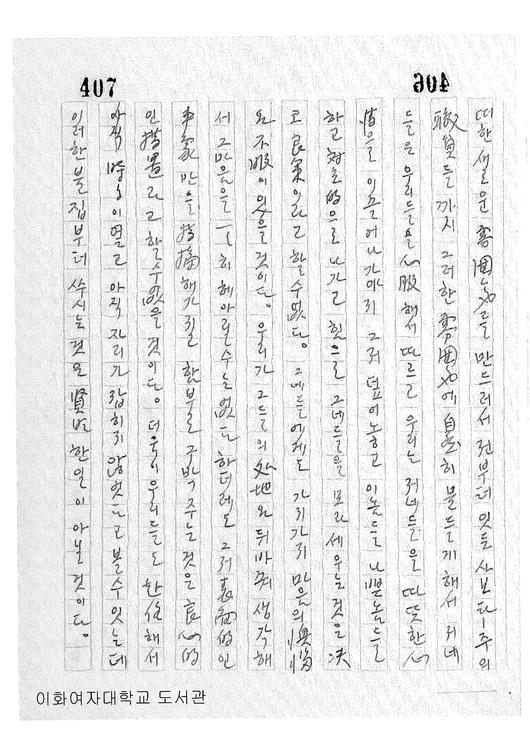 407
904
떠한 새로운 雰囲気를 만드러서 전부터 잇든 사보타-주의
職員들까지 그러한 雰囲気에 自然히 물들게 해서 저네
들은 우리들을 心服해서 따르고 우리는 저네들을 따뜻한 心
情을 이끌어나가야지 그저 덮어놓고 이놈들 나쁜놈들
하고 으로 나가고 힘으로 그네들을 모라세우는 것은 决
코 良策이라고 할 수 없다. 그네들에게도 가지가지 마음의 懊惱
와 不服이 잇을 것이다. 우리가 그들의 处地와 뒤바꿔 생각해
서 그 마음을 헤아릴 수는 없다 하더래도 그저 表面的인
만을 指摘해가지고 한부로 주는 것을 良心的
인 라고 할 수 없을 것이다. 더욱이 우리들도 해서
아직 時日이 옅고 아직 자리가 잡히지 않엇다고 볼 수 잇는데
이러한 불집부터 쑤시는 것은 賢明한 일이 아닐 것이다.
이화여자대학교 도서관